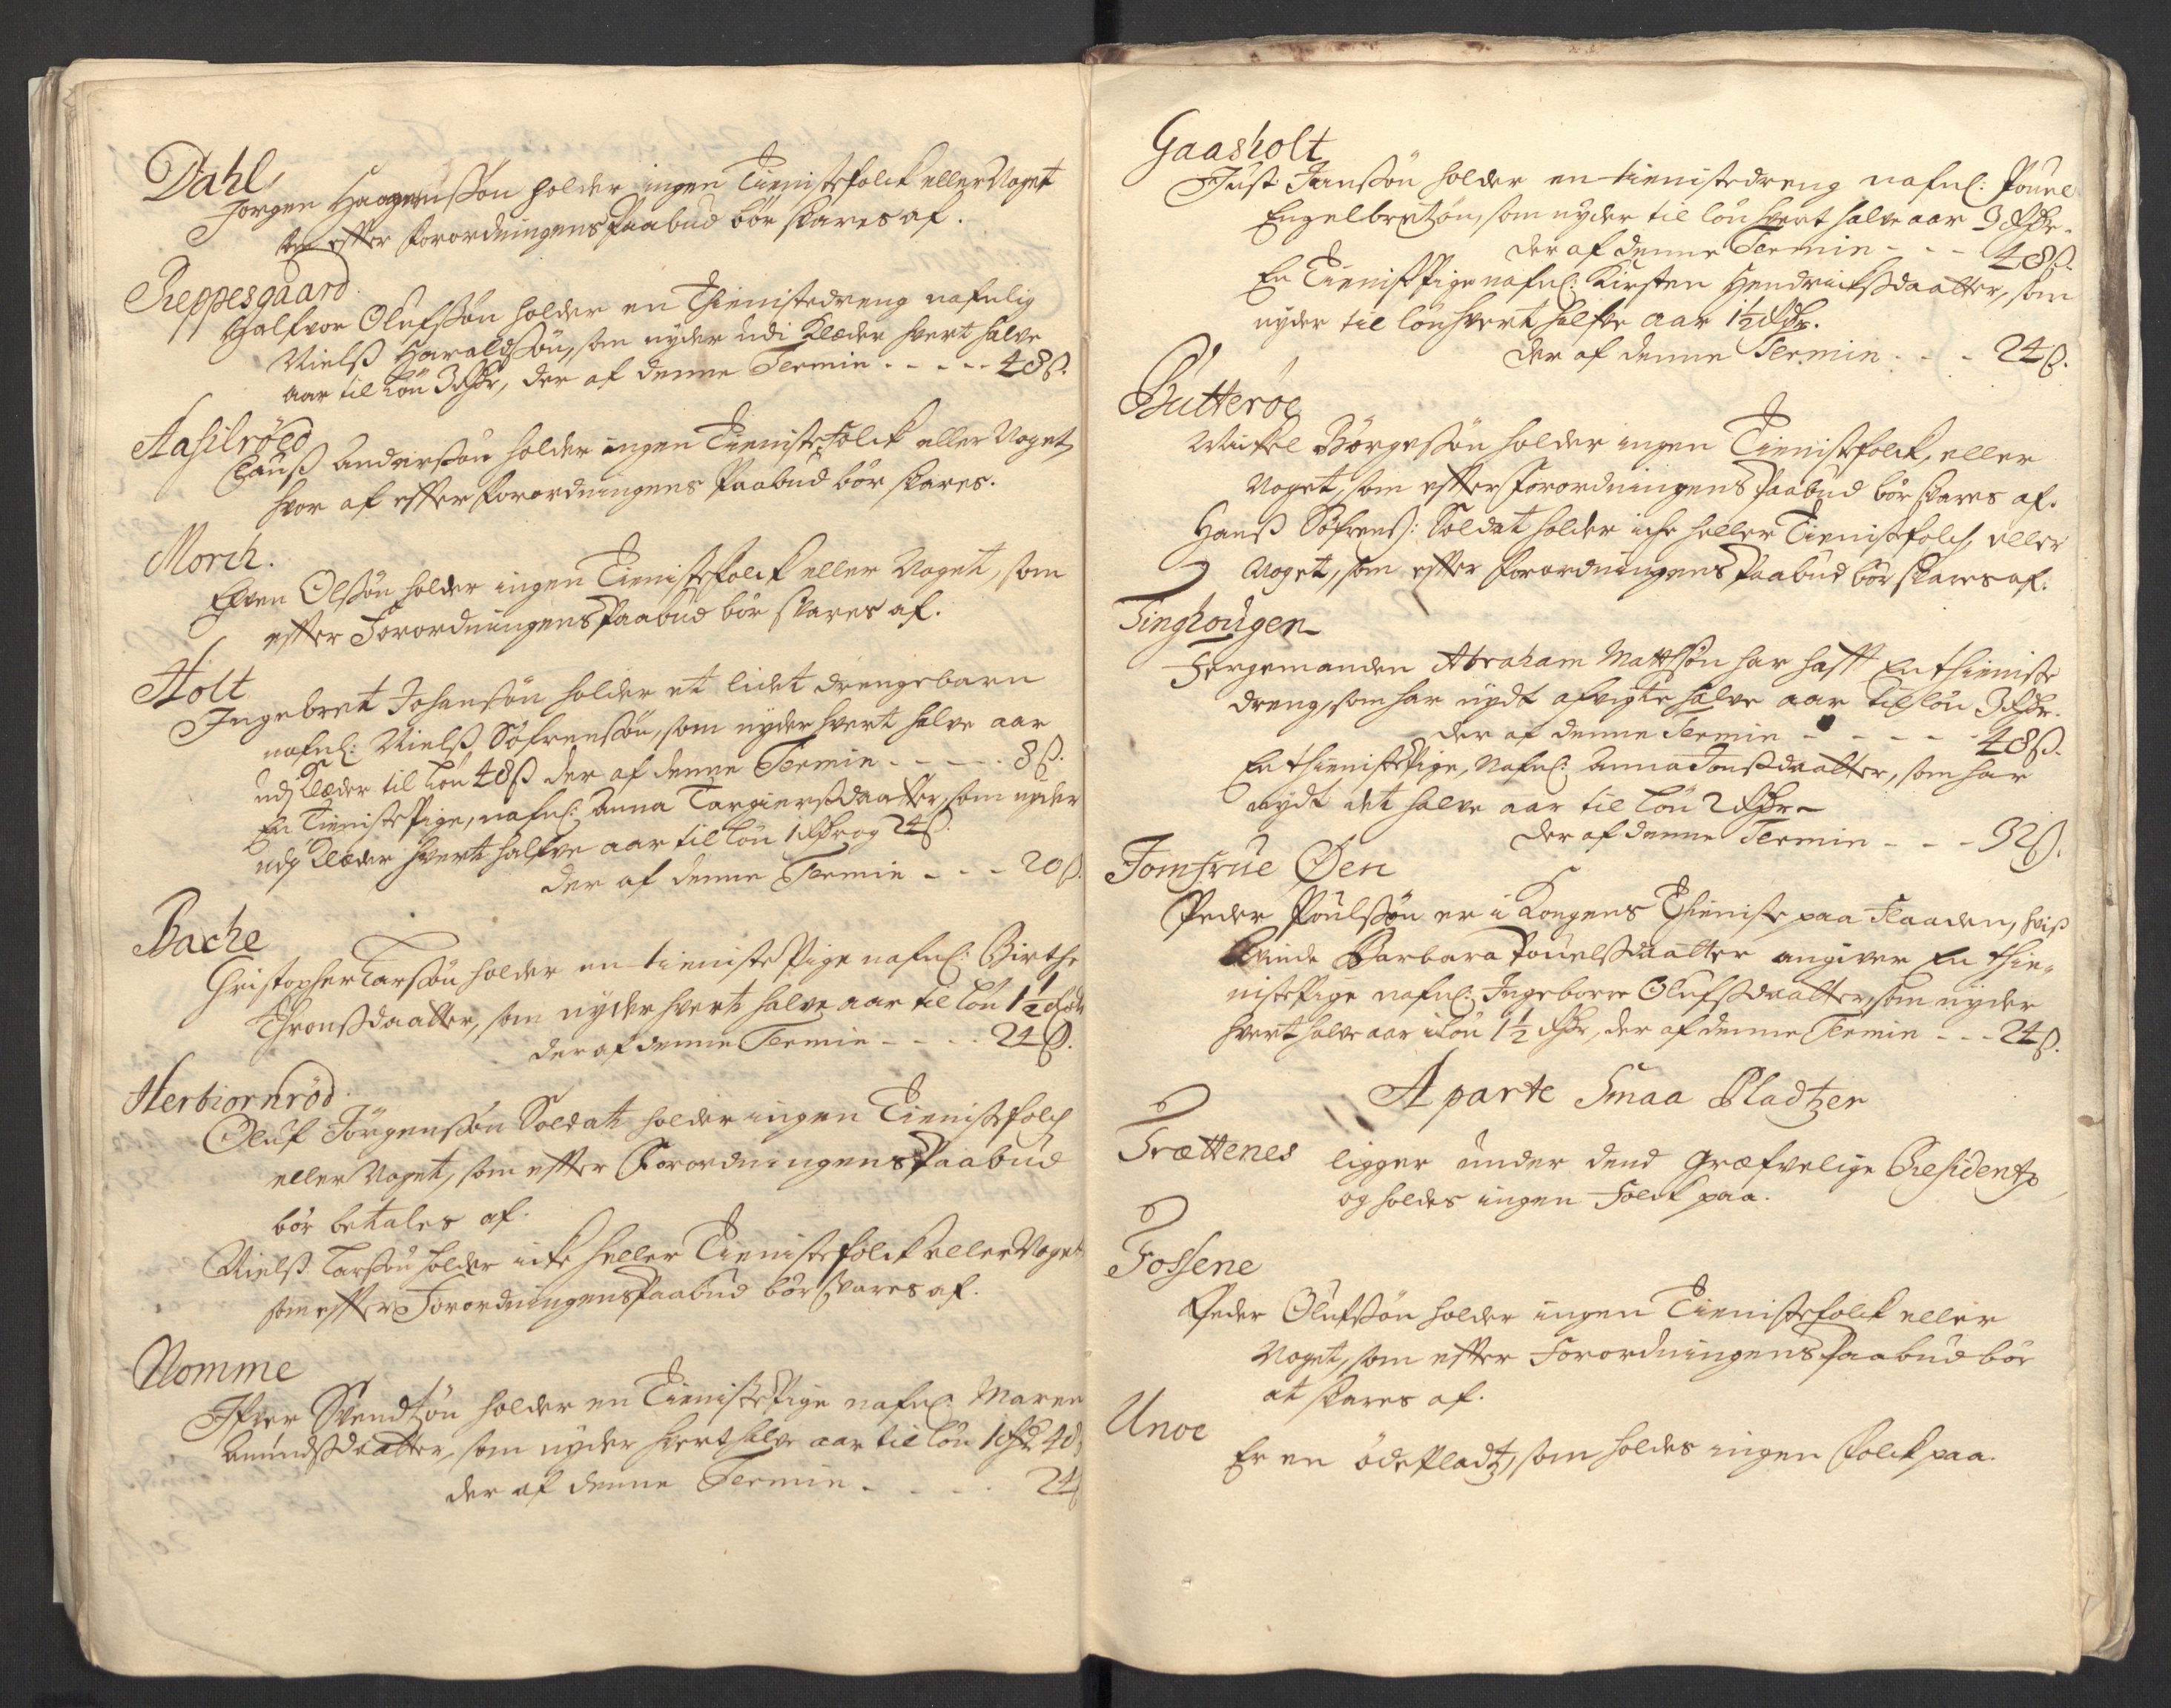 Dahl
Jorgen Haagenßøn holder ingen Tienistefolck eller Noget
som effter forordningens Paabud bør skares af.
Reppesgaard
Halfvor Olufßøn holder en Thienistedreng nafnlig
Nielß Haraldßøn, som nyder udi Klæder hvert halve
aar til Løn 3 Rdr, der af denne Termin - - - - - 48ß.
Aasilrøed
Clauß Anderßøn holder ingen Tienistefolck eller Noget
hvor af effter forordningens Paabud bør skares.
Morch.
Efven Olßøn holder ingen Tienistefolck eller Noget, som
effter Forordningens Paabud bør skares af.
Holt
Ingebret Johanßøn holder et lidet drengebarn
nafnl: Nielß Søfrenßøn, som nyder hvert halve aar
udj Klæder til Løn 48ß der af denne Termin - - - - - 8ß.
En TienistePige, nafnl: Anna Targierßdaatter, som nyder
udj Klæder hvert halfve aar til Løn 1 Rdr og 24ß.
der af denne Termin - - - 20ß.
Bache
Christopher Larßøn holder en tienistePige nafnl: Birthe
Thronßdaatter, som nyder hvert halve aar til Løn 1½ Rdr
der af denne Termin - - - - 24ß.
Herbiornrød
Oluf Jørgenßøn Soldat holder ingen Tienistefolch
eller Noget, som effter Forordningens Paabud
bør betales af.
Nielß Larßøn holder icke heller Tienistefolck eller Noget
som effter Forordningens Paabud bør skares af.
Nomme
Ifver Svendtzøn holder en TienistePige nafnl: Maren
Amundßdaatter, som nyder hvert halve aar til Løn 1 Rd 48ß
der af denne Termin - - - - 24
Gaasholt
Just Janßøn holder en tienistedreng nafnl: Pouel
Engelbretzøn, som nyder til løn hvert halve aar 3 Rdr.
der af denne Termin - - - 48ß.
En TienistPige nafnl: Kirsten Hendrichßdaatter, som
nyder til løn hvert halfve aar 1½ Rdr.
der af denne Termin - - - 24ß.
Butterøe
Michel Børgeßøn holder ingen Tienistefolck, eller
Noget, som effter Forordningens Paabud bør skares af.
Hanß Søfrenß: Soldat holder iche heller Tienistefolch eller
Noget, som effter forordningens Paabud bør skares af.
Tinghougen
Fergemanden Abraham Mattßøn har hafft En thieniste
dreng, som har nydt afvigte halve aar til løn 3 Rdr.
der af denne Termin - - - - - 48ß.
En thienistePige, Nafnl: Anna Jonßdaatter, som har
nydt det halve aar til Løn 2 Rdr -
der af denne Termin - - - 32ß.
Jomfrue Øen
Peder Poulßøn er i Kongens Thieniste paa Flaaden, hviß
Qvinde Barbara Pouelßdaatter angiver En thie-
nistePige nafnl: Ingeborre Olufßdaatter, som nyder
hvert halve aar i løn 1½ Rdr, der af denne Termin - - - 24ß.
Aparte Smaa Pladtzer
Trættenes ligger under dend Græfvelige Residentz
og holdes ingen Folck paa.
Fossene
Peder Olufßøn holder ingen Tienistefolck eller
Noget, som effter Forordningens Paabud bør
at skares af.
Unoe
Er en ødePladtz, som holdes ingen Folck paa.